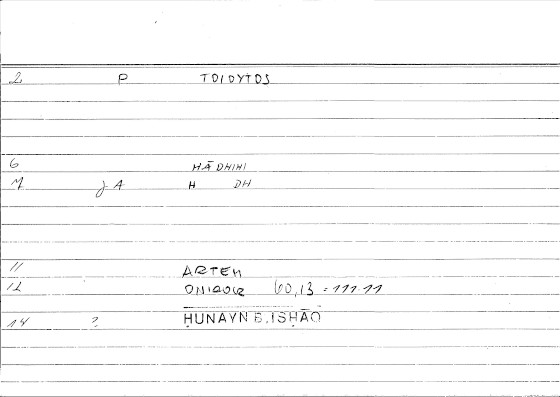 2 P TOIOYTOS
6 HĀDHIHI
7 jA H DH
11 ARTEM
12 ONIROCR 60,13 = 111.11
14 ? ḤUNAYN B. ISḤĀQ